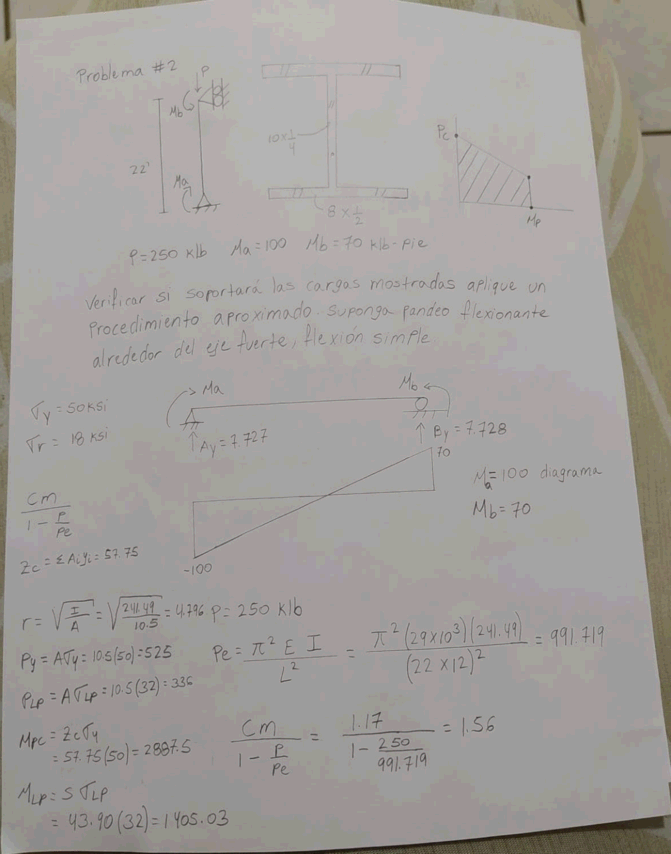 Problema #2
P
Mb
22'
Ma
10 x 1/4
8 x 1/2
Pc
Mp
P=250 klb Ma=100 Mb=70 klb-pie
Verificar si soportará las cargas mostradas aplique un
Procedimiento aproximado. Suponga pandeo flexionante
alrededor del eje fuerte, flexión simple
σy = 50ksi
σr = 18 ksi
Ma
Mb
Ay=7.727
By=7.728
70
-100
Ma=100 diagrama
Mb=70
Cm / (1 - P/Pe)
Zc = ΣAiyi = 57.75
r = √(I/A) = √(241.49/10.5) = 4.796 P=250 klb
Py = Aσy = 10.5(50) = 525
Pe = π² E I / L² = π² (29x10³)(241.49) / (22 x12)² = 991.719
PLP = AσLP = 10.5(32) = 336
Mpc = Zcσy
= 57.75(50) = 2887.5
Cm / (1 - P/Pe) = 1.17 / (1 - 250/991.719) = 1.56
MLP = S σLP
= 43.90(32) = 1405.03